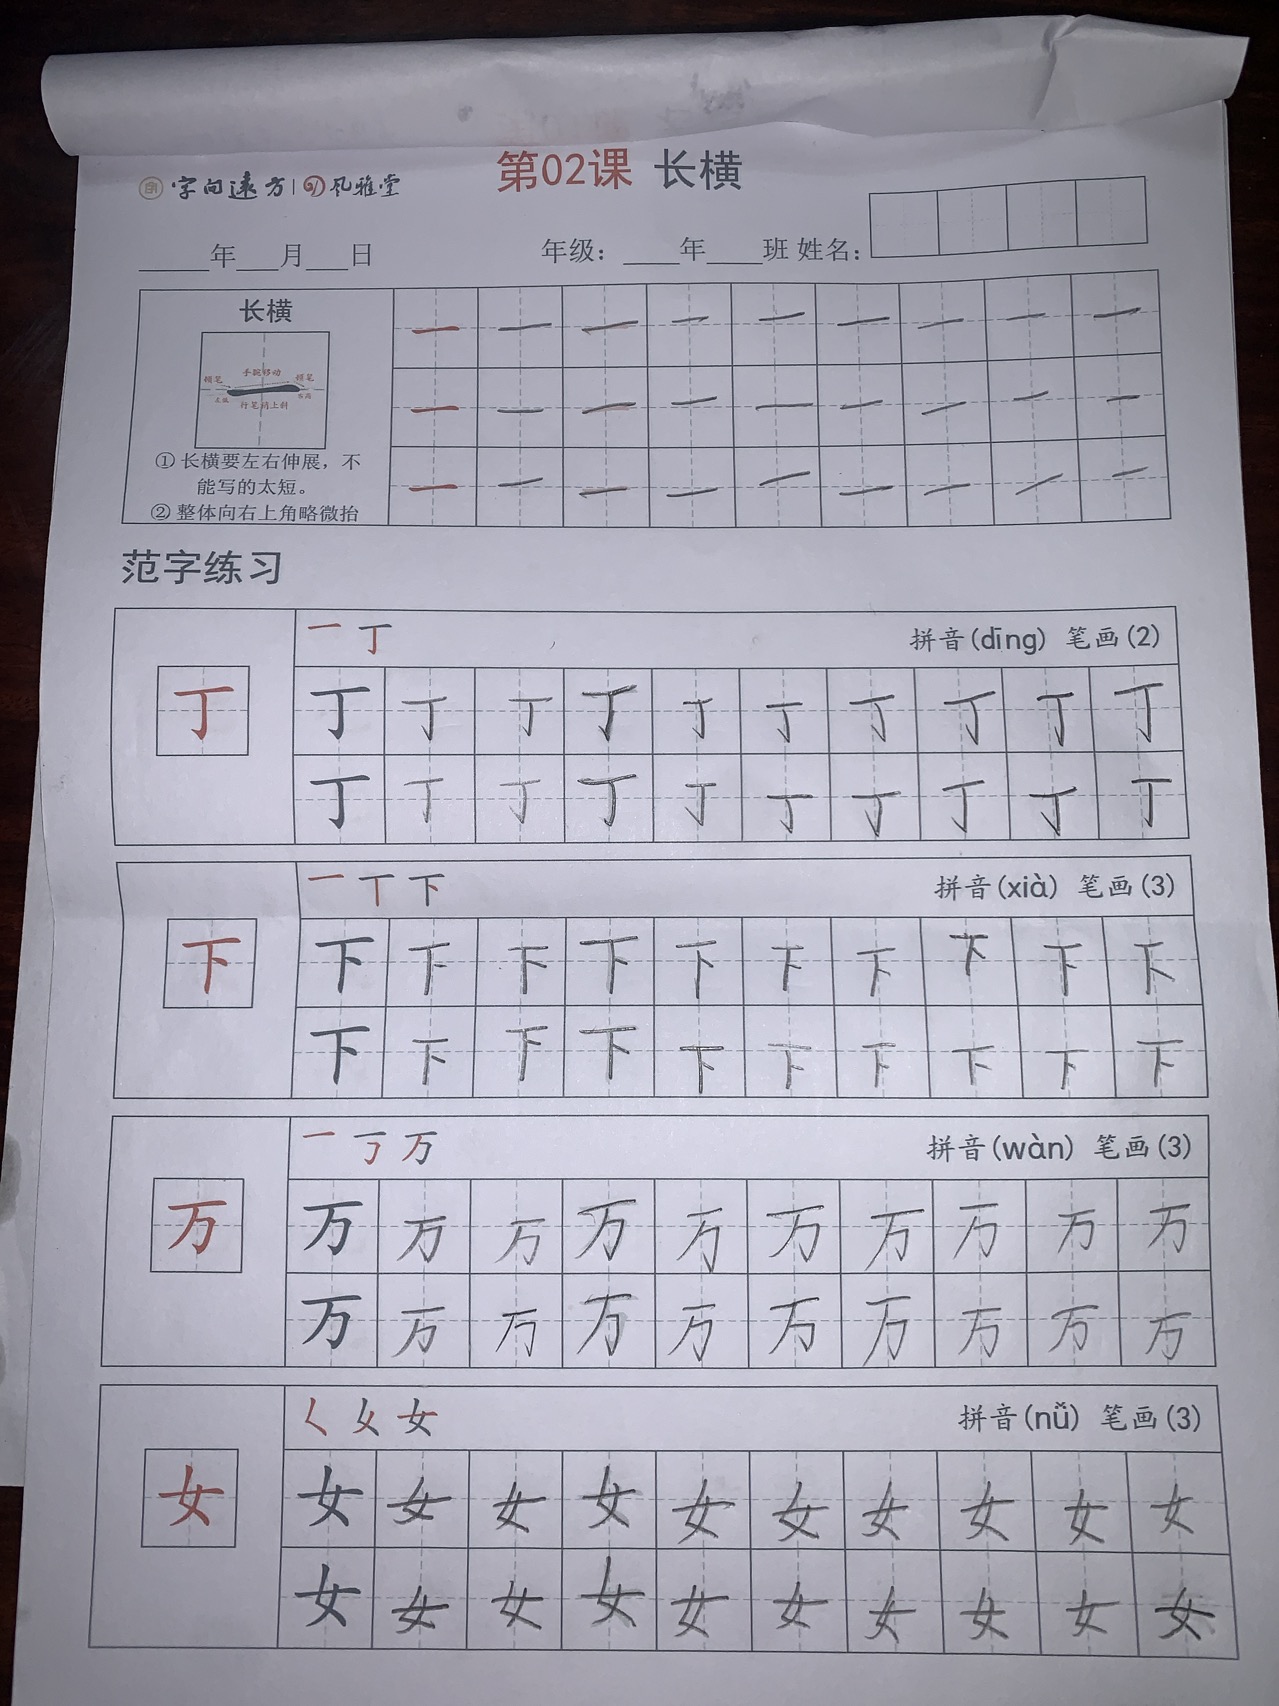 字向远方 | 风雅堂
第02课 长横
____年___月___日 年级：____年____班 姓名：
长横
手腕移动
顿笔 顿笔
行笔稍上斜
① 长横要左右伸展，不
能写的太短。
② 整体向右上角略微抬
一 一 一 一 一 一 一 一 一
一 一 一 一 一 一 一 一 一
一 一 一 一 一 一 一 一 一
范字练习
一 丁 拼音(dīng) 笔画(2)
丁
丁 丁 丁 丁 丁 丁 丁 丁 丁 丁
丁 丁 丁 丁 丁 丁 丁 丁 丁 丁
一 丅 下 拼音(xià) 笔画(3)
下
下 下 下 下 下 下 下 下 下 下
下 下 下 下 下 下 下 下 下 下
一 丂 万 拼音(wàn) 笔画(3)
万
万 万 万 万 万 万 万 万 万 万
万 万 万 万 万 万 万 万 万 万
𡿨 乂 女 拼音(nǚ) 笔画(3)
女
女 女 女 女 女 女 女 女 女 女
女 女 女 女 女 女 女 女 女 女